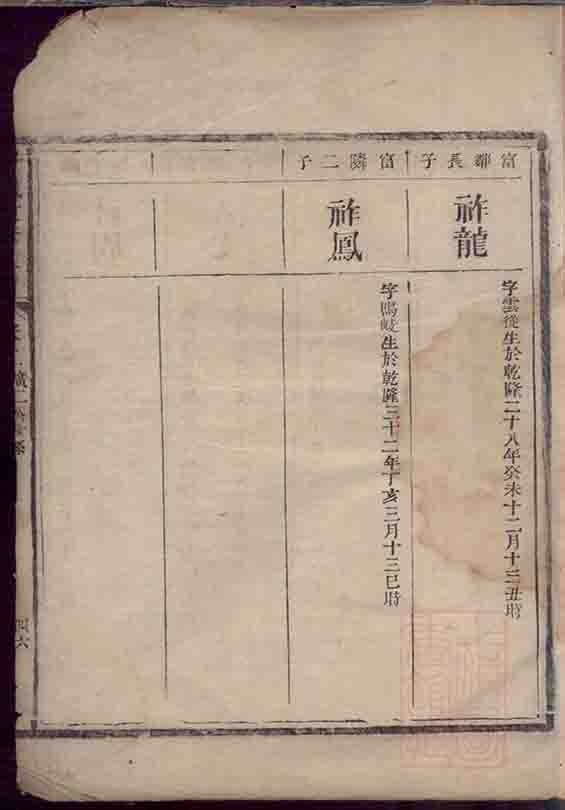 富鄰長子
祚龍
字雲從生於乾隆二十八年癸未十二月十二丑時
富隣二子
祚鳳
字鳴岐生於乾隆三十二年丁亥三月十三巳時
四六